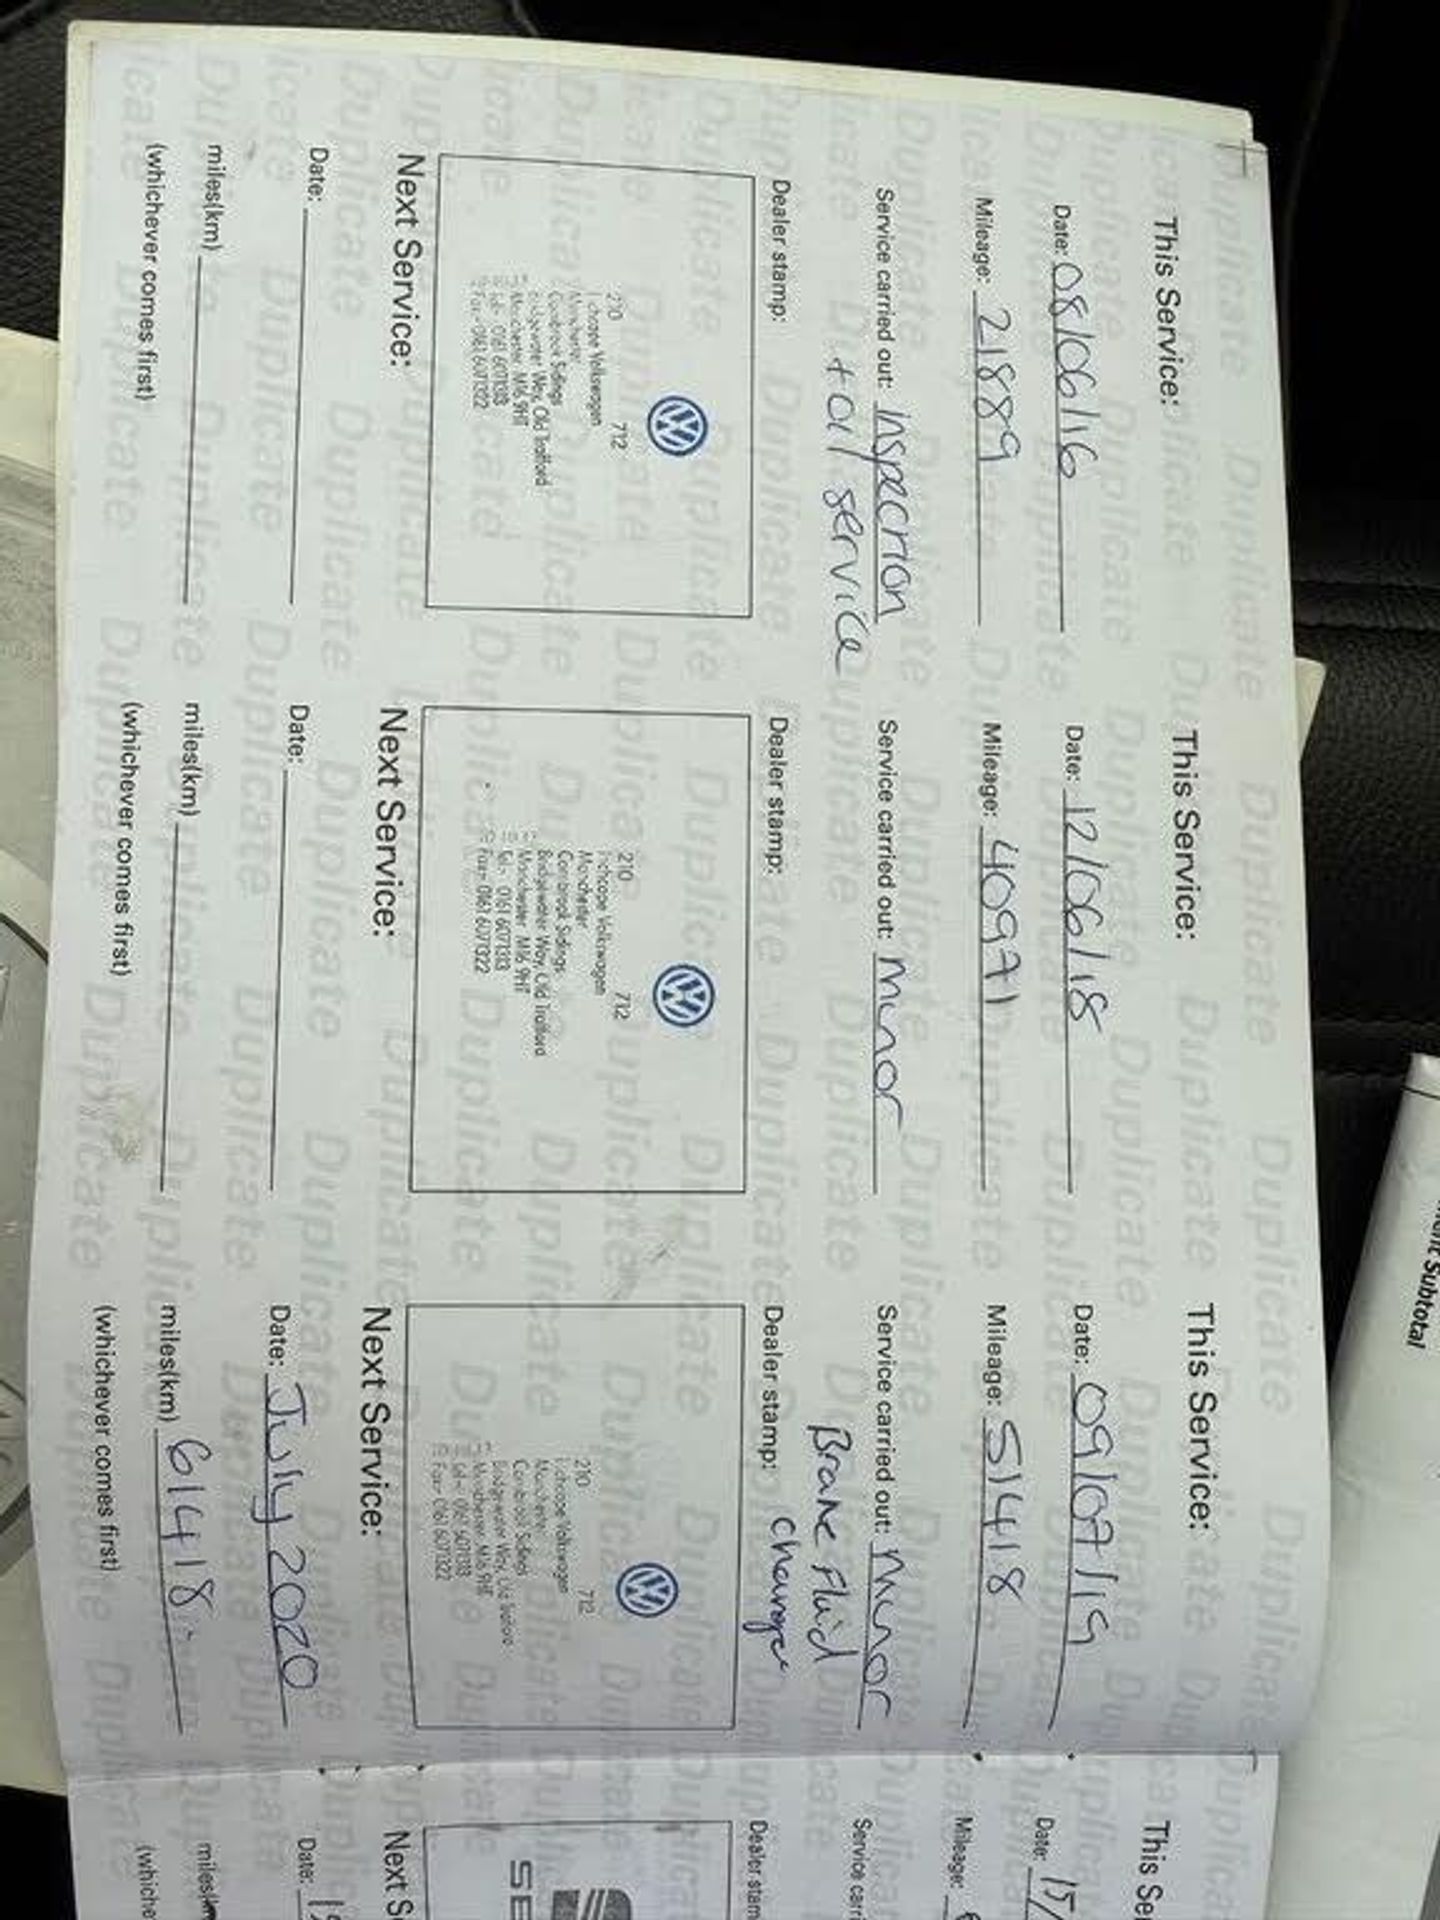 This Service:
Date: 08/06/16
Mileage: 21889
Service carried out: Inspection
+oil service
Dealer stamp:
210 712
Inchcape Volkswagen
Manchester
Cornbrook Sidings
Bridgewater Way, Old Trafford
Manchester M16 9HT
Tel:- 0161 6071313
Fax:- 0161 6071322
Next Service:
Date:
miles(km)
(whichever comes first)
This Service:
Date: 12/06/18
Mileage: 40971
Service carried out: Minor
Dealer stamp:
210 712
Inchcape Volkswagen
Manchester
Cornbrook Sidings
Bridgewater Way, Old Trafford
Manchester M16 9HT
Tel:- 0161 6071313
Fax:- 0161 6071322
Next Service:
Date:
miles(km)
(whichever comes first)
This Service:
Date: 09/07/19
Mileage: 51418
Service carried out: Minor
Brake Fluid
Change
Dealer stamp:
210 712
Inchcape Volkswagen
Manchester
Cornbrook Sidings
Bridgewater Way, Old Trafford
Manchester M16 9HT
Tel:- 0161 6071313
Fax:- 0161 6071322
Next Service:
Date: July 2020
miles(km) 61418
(whichever comes first)
This Ser
Date: 15/
Mileage:
Service carri
Dealer stam
SE
Next S
Date:
miles(km
(whiche
Subtotal
Duplicate